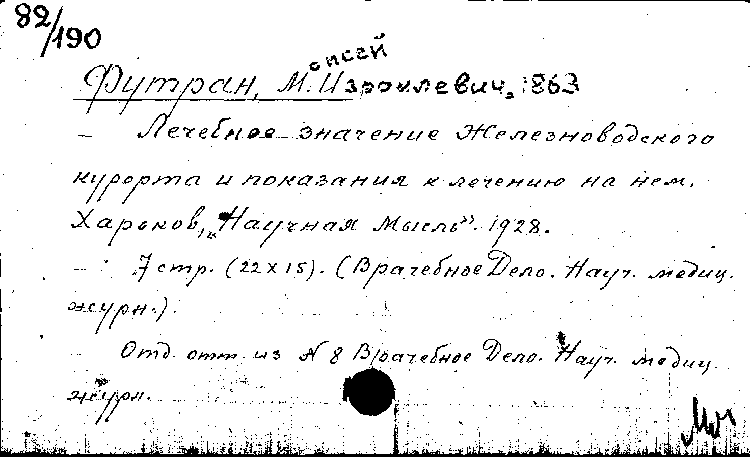 82/190
Футран, Моисей Израилевич, 1863
— Лечебное значение Железноводского
курорта и показания к лечению на нем.
Харьков, „Научная Мысль". 1928.
— 7 стр. (22х15). (Врачебное Дело. Науч. медиц.
журн.).
Отд. отт. из № 8 Врачебное Дело. Науч. медиц.
журн.